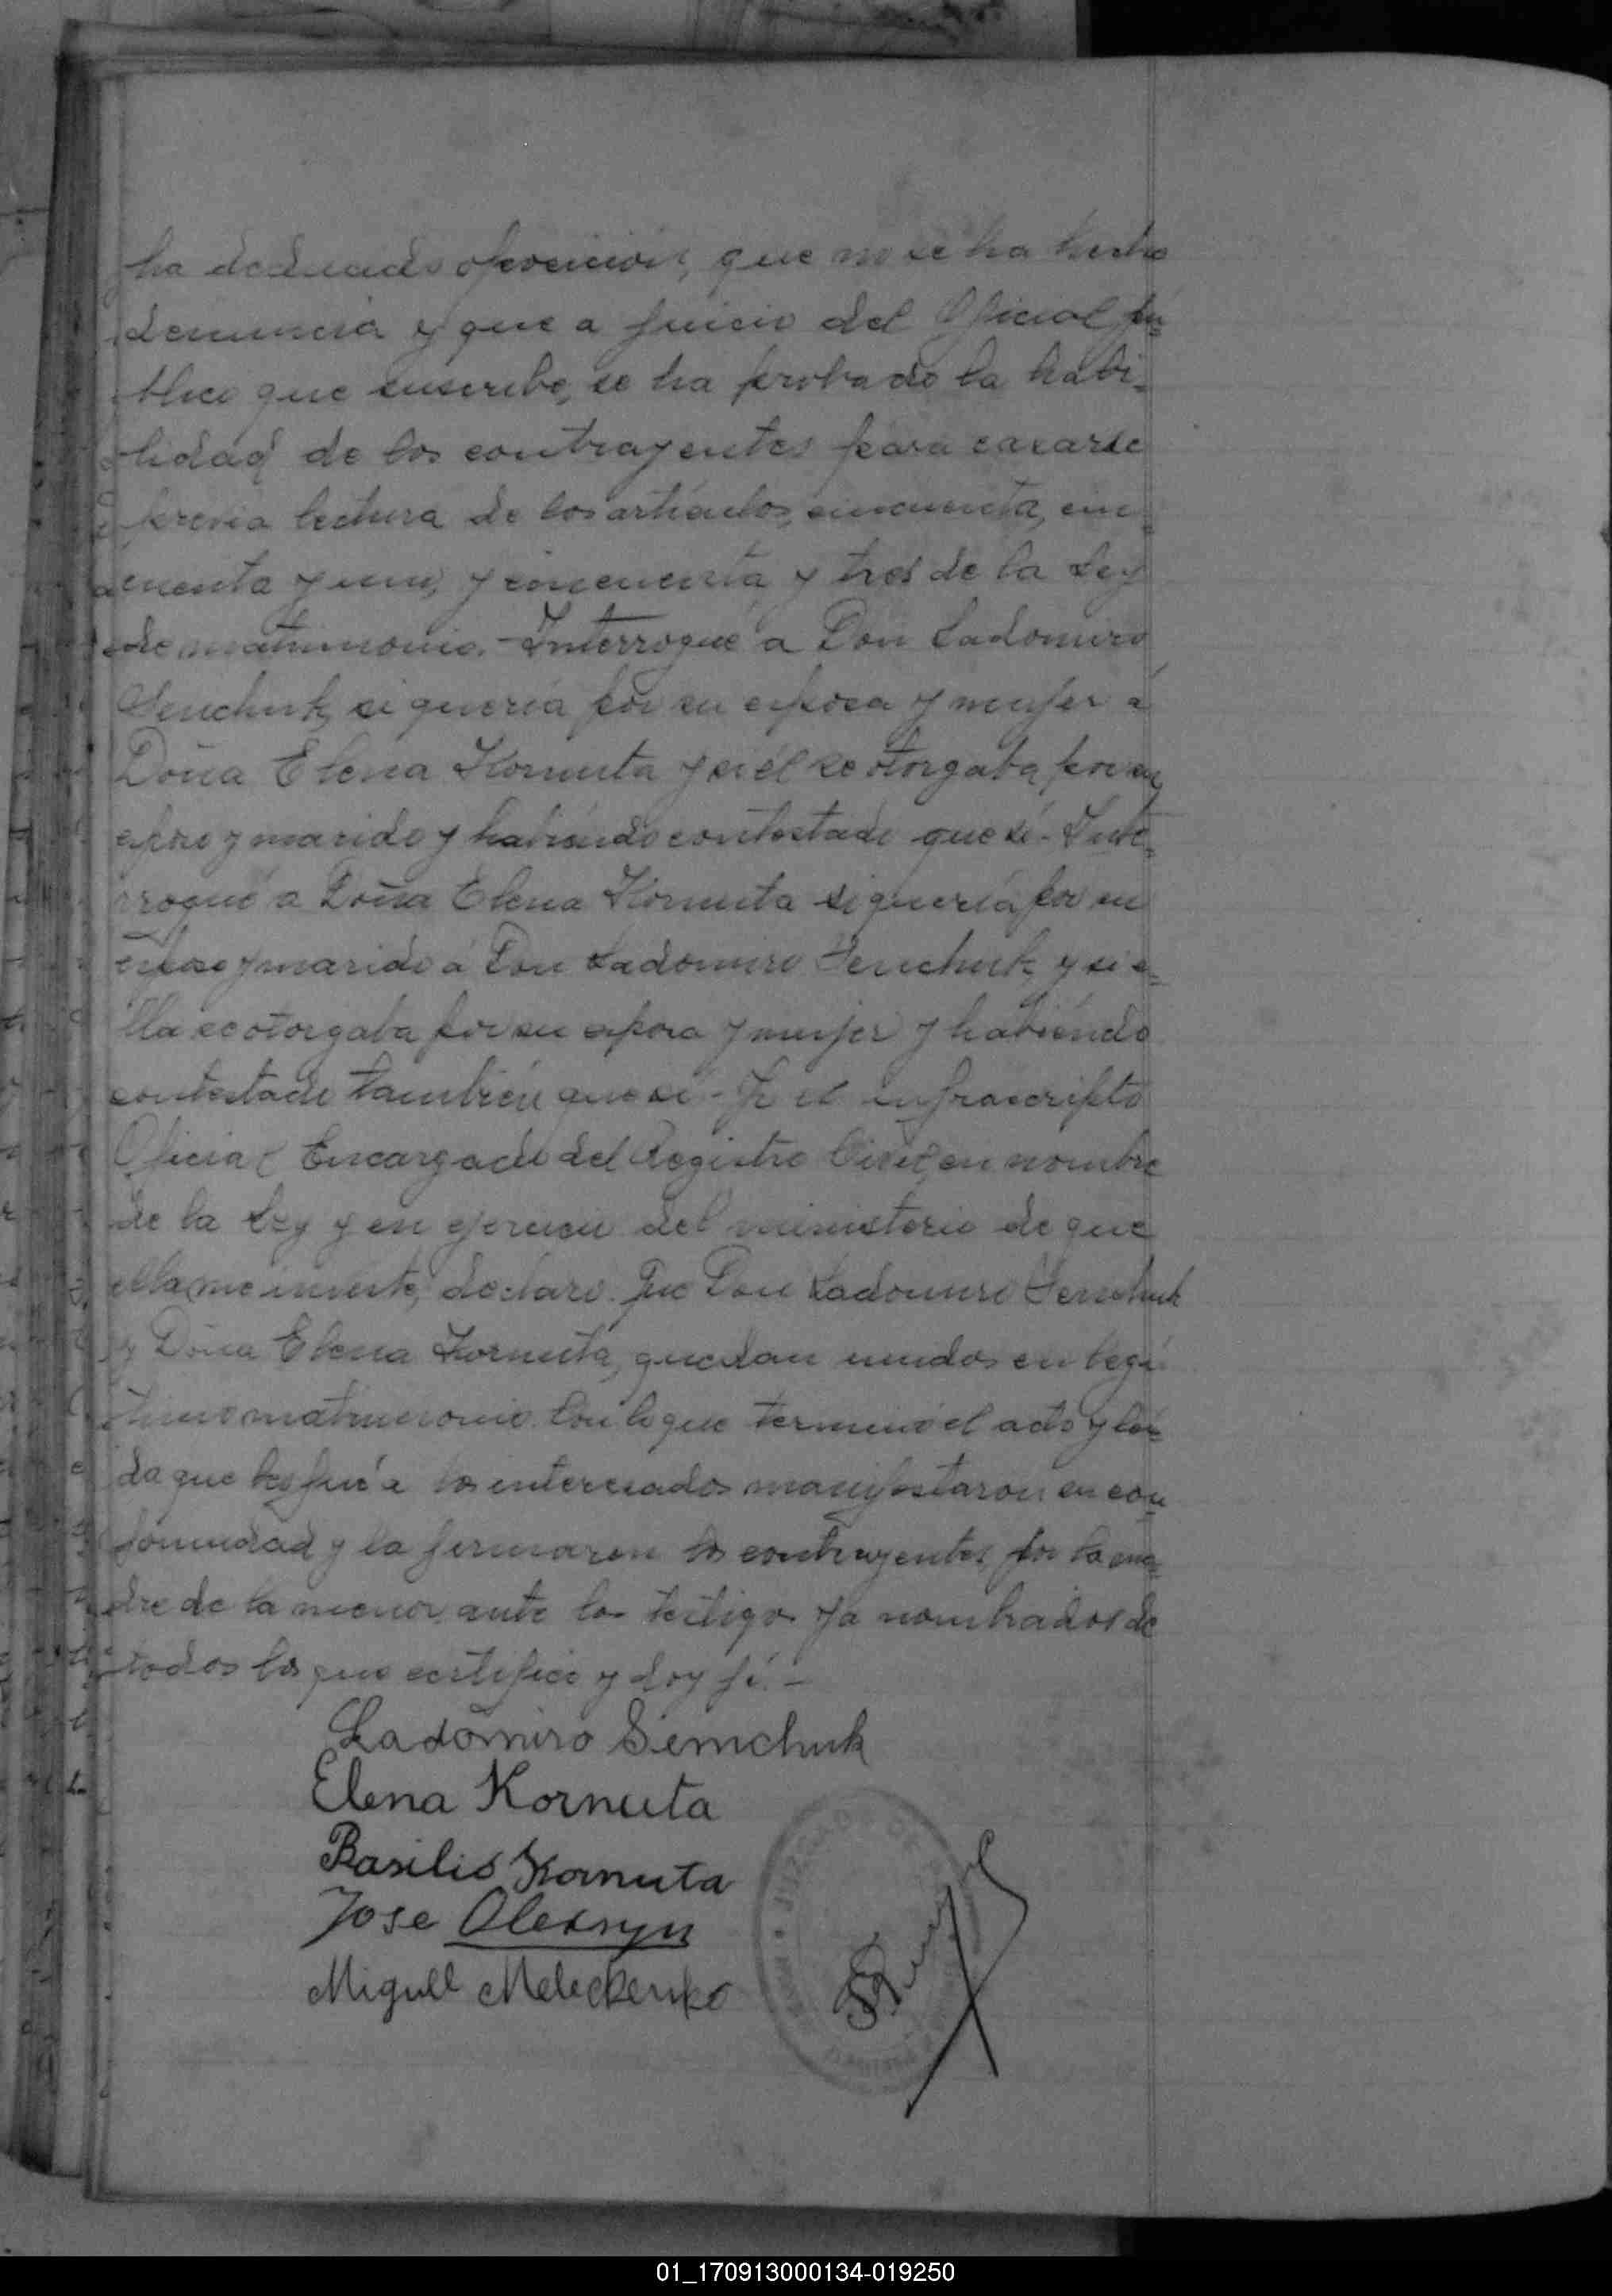 ha deducido oposición, que no se ha hecho
denuncia y que a juicio del Oficial pú-
blico que suscribe, se ha probado la habi-
lidad de los contrayentes para casarse
previa lectura de los artículos, cincuenta, cin-
cuenta y uno, y cincuenta y tres de la Ley
de matrimonio.- Interrogué a Don Ladomiro
Semchuk, si quería por su esposa y mujer á
Doña Elena Kornuta y si él se otorgaba por su
esposo y marido y habiendo contestado que sí.- Inte-
rrogué a Doña Elena Kornuta si quería por su
esposo y marido á Don Ladomiro Semchuk, y si e-
lla se otorgaba por su esposa y mujer y habiendo
contestado también que sí.- Yo el infrascripto
Oficial Encargado del Registro Civil, en nombre
de la Ley y en ejercicio del ministerio de que
ella me inviste, declaro. Que Don Ladomiro Semchuk
y Doña Elena Kornuta, quedan unidos en legí-
timo matrimonio. Con lo que terminó el acto y leí-
da que les fué a los interesados manifestaron su con-
formidad y la firmaron los contrayentes, por la ma-
dre de la menor, ante los testigos ya nombrados de
todos los que certifico y doy fé.-
Ladomiro Semchuk
Elena Kornuta
Basilio Kornuta
Jose Oleksyn
Miguel Melechenko
JUZGADO DE
01_170913000134-019250